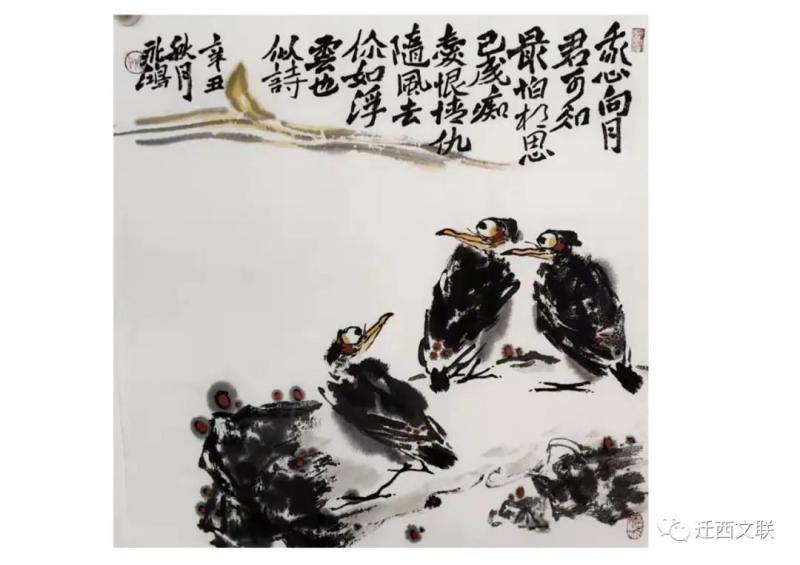 我心向月
君可知
最怕相思
已成痴
爱恨情仇
隨風去
你如浮
雲也
似詩
辛丑
秋月
飛鴻
迁西文联